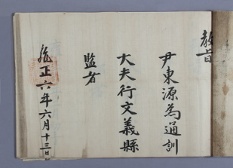 教旨
尹東源為通訓
大夫行文義縣
監者
雍正六年六月十三日